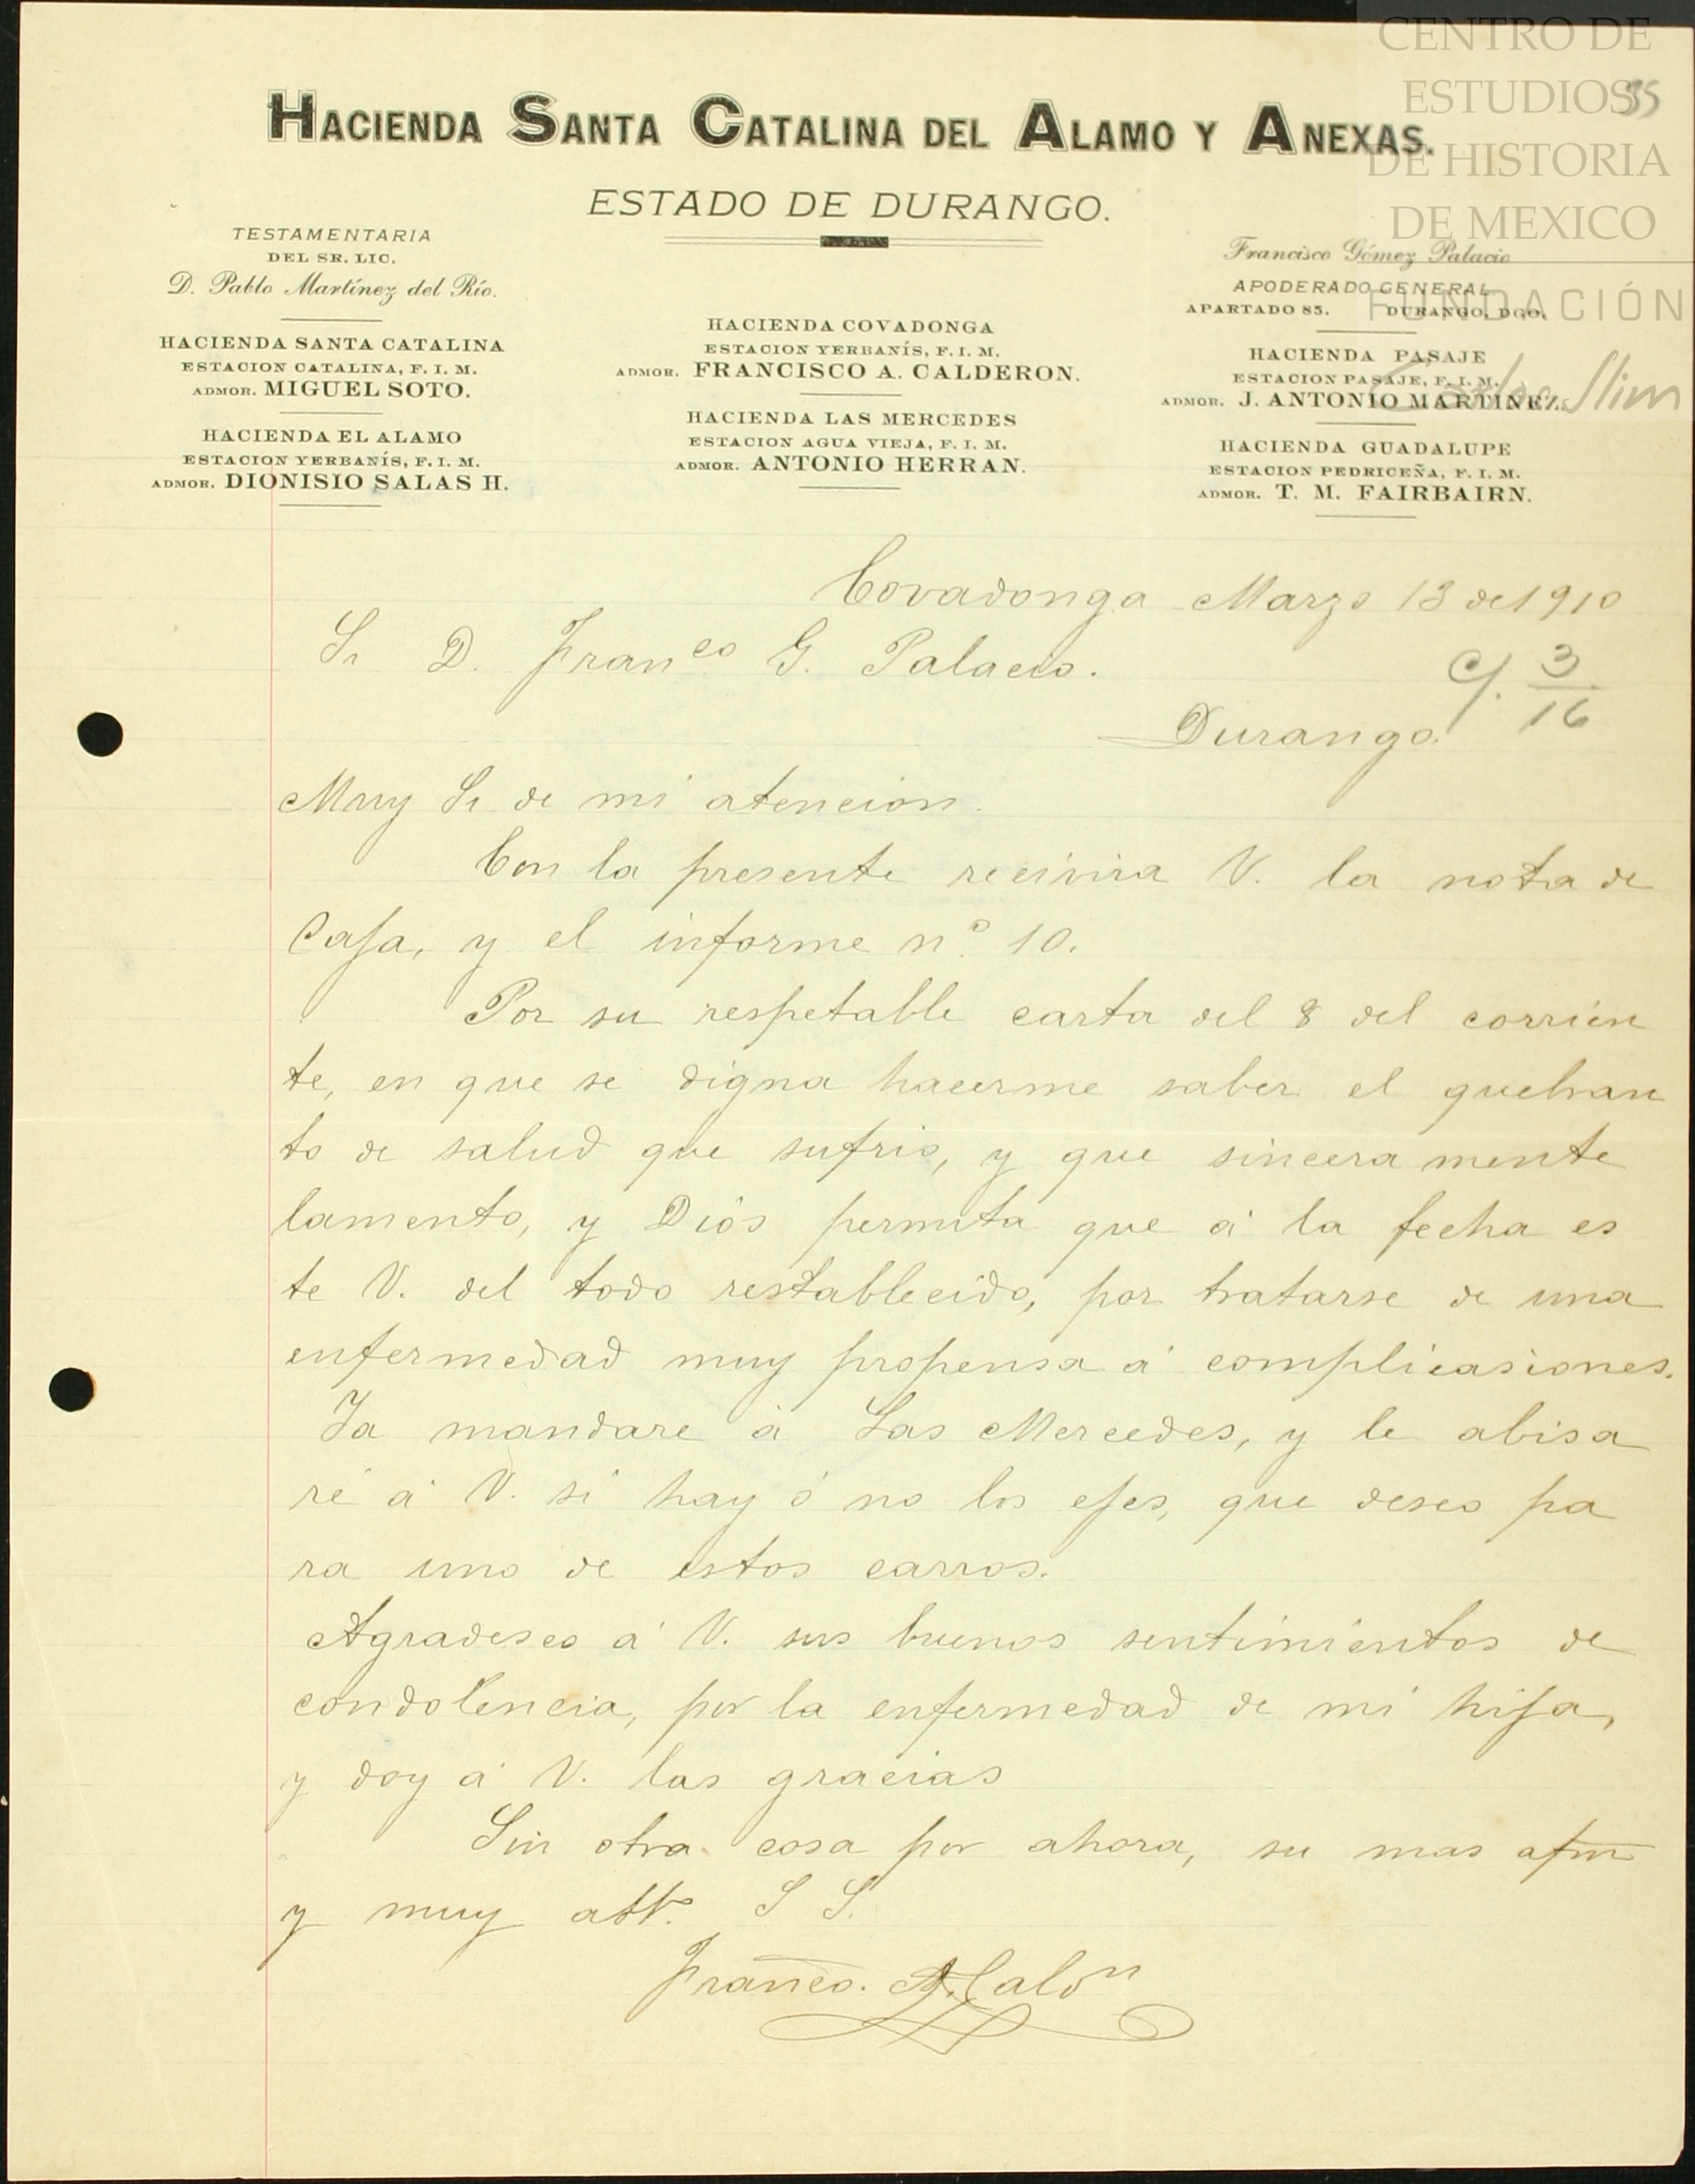 CENTRO DE
ESTUDIOS
DE HISTORIA
DE MEXICO
FUNDACIÓN
Carlos Slim
35
HACIENDA SANTA CATALINA DEL ALAMO Y ANEXAS.
ESTADO DE DURANGO.
TESTAMENTARIA
DEL SR. LIC.
D. Pablo Martínez del Río.
HACIENDA SANTA CATALINA
ESTACION CATALINA, F. I. M.
ADMOR. MIGUEL SOTO.
HACIENDA EL ALAMO
ESTACION YERBANÍS, F. I. M.
ADMOR. DIONISIO SALAS H.
HACIENDA COVADONGA
ESTACION YERBANÍS, F. I. M.
ADMOR. FRANCISCO A. CALDERON.
HACIENDA LAS MERCEDES
ESTACION AGUA VIEJA, F. I. M.
ADMOR. ANTONIO HERRAN.
Francisco Gómez Palacio
APODERADO GENERAL
APARTADO 85. DURANGO, DGO.
HACIENDA PASAJE
ESTACION PASAJE, F. I. M.
ADMOR. J. ANTONIO MARTINEZ.
HACIENDA GUADALUPE
ESTACION PEDRICEÑA, F. I. M.
ADMOR. T. M. FAIRBAIRN.
Covadonga Marzo 13 de 1910
Sr D. Franco G. Palacio.
C/. 3/16
Durango.
Muy Sr de mi atencion.
Con la presente recivira V. la nota de
Caja, y el informe nº 10.
Por su respetable carta del 8 del corrien
te, en que se digna hacerme saber el quebran
to de salud que sufrio, y que sinceramente
lamento, y Diós permita que á la fecha es
te V. del todo restablecido, por tratarse de una
enfermedad muy propensa á complicasiones.
Ya mandare á Las Mercedes, y le abisa
ré á V. si hay ó no los ejes, que deseo pa
ra uno de estos carros.
Agradesco á V. sus buenos sentimientos de
condolencia, por la enfermedad de mi hija,
y doy á V. las gracias
Sin otra cosa por ahora, su mas afm
y muy attº. S S.
Franco. A. Caldn